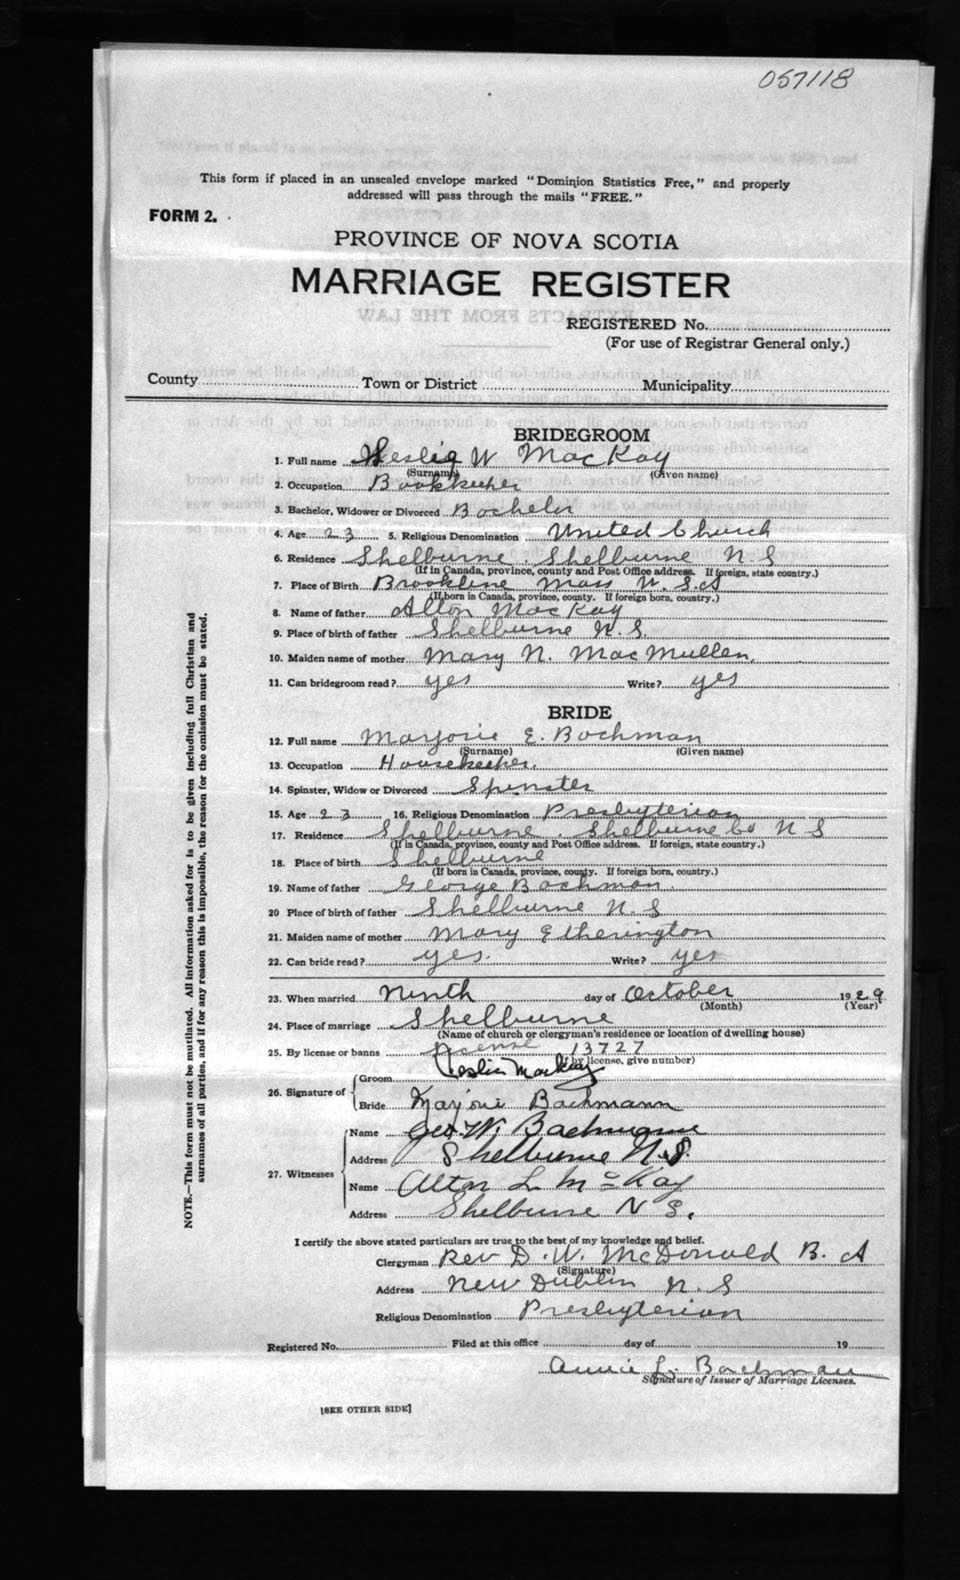 057118
This form if placed in an unsealed envelope marked "Dominion Statistics Free," and properly
addressed will pass through the mails "FREE."
FORM 2.
PROVINCE OF NOVA SCOTIA
MARRIAGE REGISTER
EXTRACTS FROM THE LAW
REGISTERED No.
(For use of Registrar General only.)
County Town or District Municipality
BRIDEGROOM
1. Full name Leslie W MacKay
(Surname) (Given name)
2. Occupation Bookkeeper
3. Bachelor, Widower or Divorced Bachelor
4. Age 23 5. Religious Denomination United Church
6. Residence Shelburne, Shelburne N.S
(If in Canada, province, county and Post Office address. If foreign, state country.)
7. Place of Birth Brookline Mass U.S.A
(If born in Canada, province, county. If foreign born, country.)
8. Name of father Alton MacKay
9. Place of birth of father Shelburne N.S.
10. Maiden name of mother Mary N. MacMullen.
11. Can bridegroom read? yes Write? yes
BRIDE
12. Full name Marjorie E. Bachman
(Surname) (Given name)
13. Occupation Housekeeper.
14. Spinster, Widow or Divorced Spinster
15. Age 23 16. Religious Denomination Presbyterian
17. Residence Shelburne, Shelburne Co N S
(If in Canada, province, county and Post Office address. If foreign, state country.)
18. Place of birth Shelburne
(If born in Canada, province, county. If foreign born, country.)
19. Name of father George Bachman.
20 Place of birth of father Shelburne N.S
21. Maiden name of mother Mary Etherington
22. Can bride read? yes. Write? yes
23. When married Ninth day of October 1929
(Month) (Year)
24. Place of marriage Shelburne
(Name of church or clergyman's residence or location of dwelling house)
25. By license or banns License 13727
(If by license, give number)
26. Signature of
Groom Leslie MacKay
Bride Marjorie Bachmann
27. Witnesses
Name Geo. W. Bachmann
Address Shelburne N.S.
Name Alton L McKay
Address Shelburne N S.
I certify the above stated particulars are true to the best of my knowledge and belief.
Clergyman Rev D. W. McDonald B. A
(Signature)
Address New Dublin N. S
Religious Denomination Presbyterian
Registered No. Filed at this office day of 19
Annie L. Bachman
Signature of Issuer of Marriage Licenses.
[SEE OTHER SIDE]
NOTE.—This form must not be mutilated. All information asked for is to be given including full Christian and
surnames of all parties, and if for any reason this is impossible, the reason for the omission must be stated.